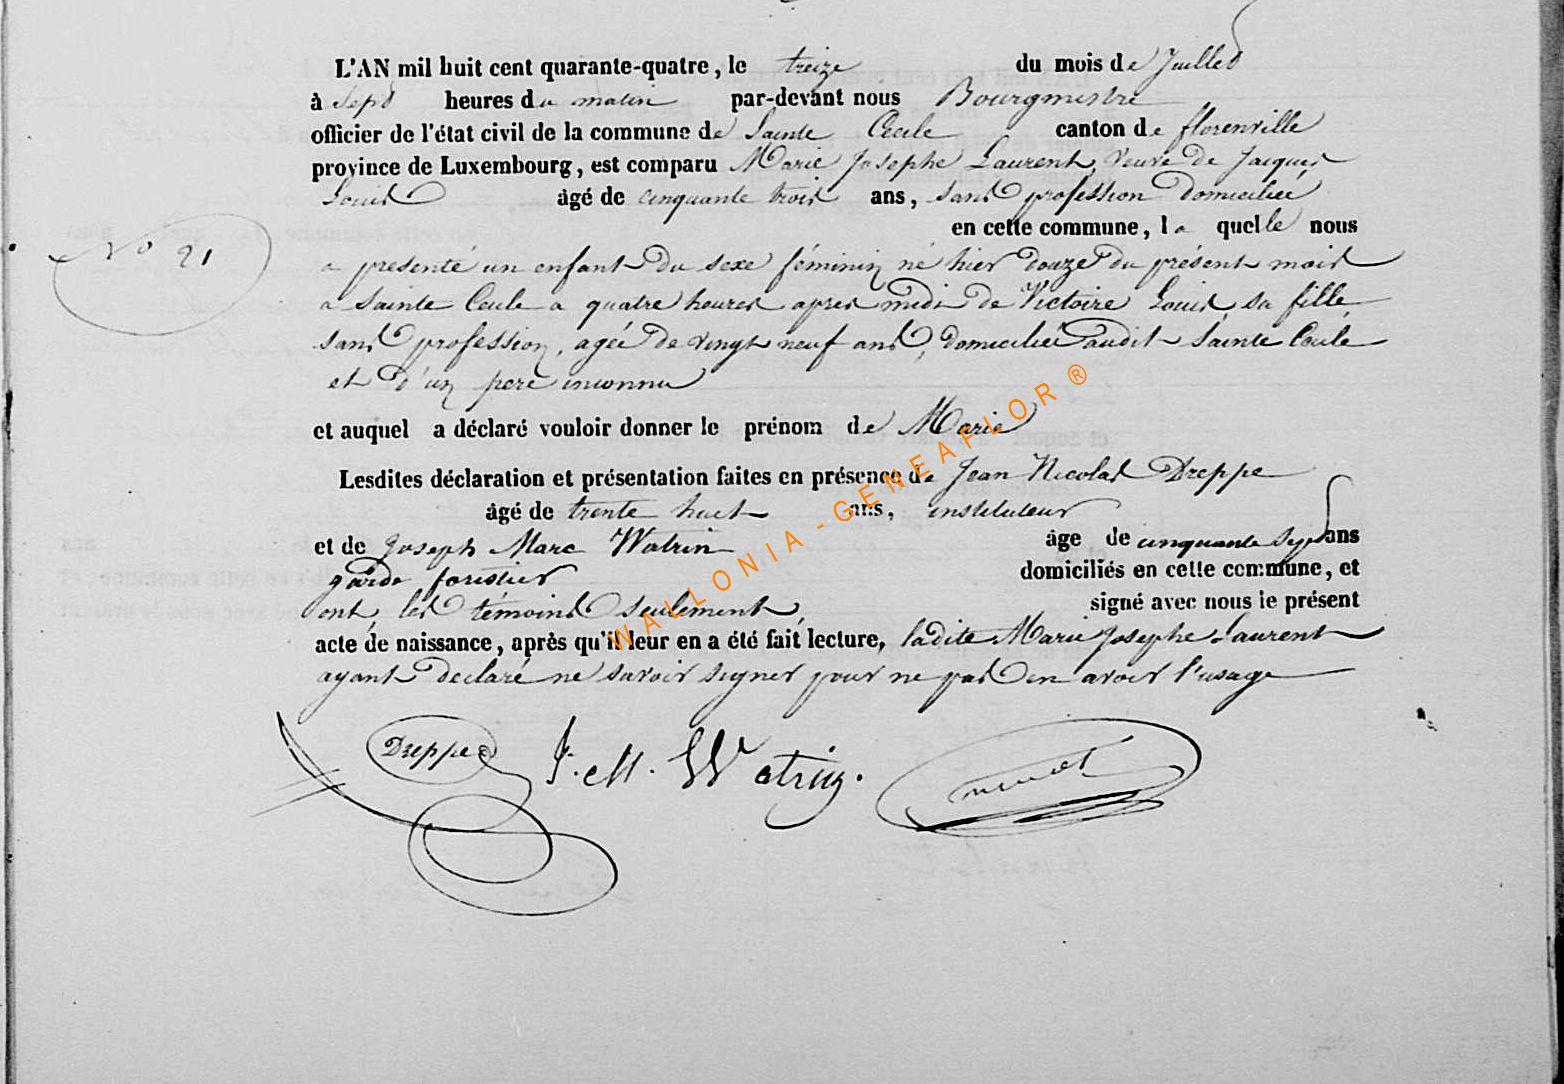 L'AN mil huit cent quarante-quatre, le treize du mois de Juillet
à Sept heures du matin par-devant nous Bourgmestre
officier de l'état civil de la commune de Sainte Cecile canton de florenville
province de Luxembourg, est comparu Marie Josephe Laurent, veuve de Jacques
Louis âgé de cinquante trois ans, sans profession domiciliée
en cette commune, la quelle nous
No 21
a présenté un enfant du sexe féminin né hier douze du présent mois
a Sainte Cecile a quatre heures apres midi de Victoire Louis, sa fille,
sans profession, agée de vingt neuf ans, domiciliée audit Sainte Cecile
et d'un pere inconnu
et auquel a déclaré vouloir donner le prénom de Marie
Lesdites déclaration et présentation faites en présence de Jean Nicolas Dreppe
âgé de trente huit ans, instituteur
et de Joseph Marc Watrin âge de cinquante sept ans
garde forestier domiciliés en cette commune, et
ont, les témoins seulement, signé avec nous le présent
acte de naissance, après qu'il leur en a été fait lecture, ladite Marie Josephe Laurent
ayant declaré ne savoir signer pour ne pas en avoir l'usage
Dreppe J. M. Watrin.
WALLONIA - GENEAFLOR ®